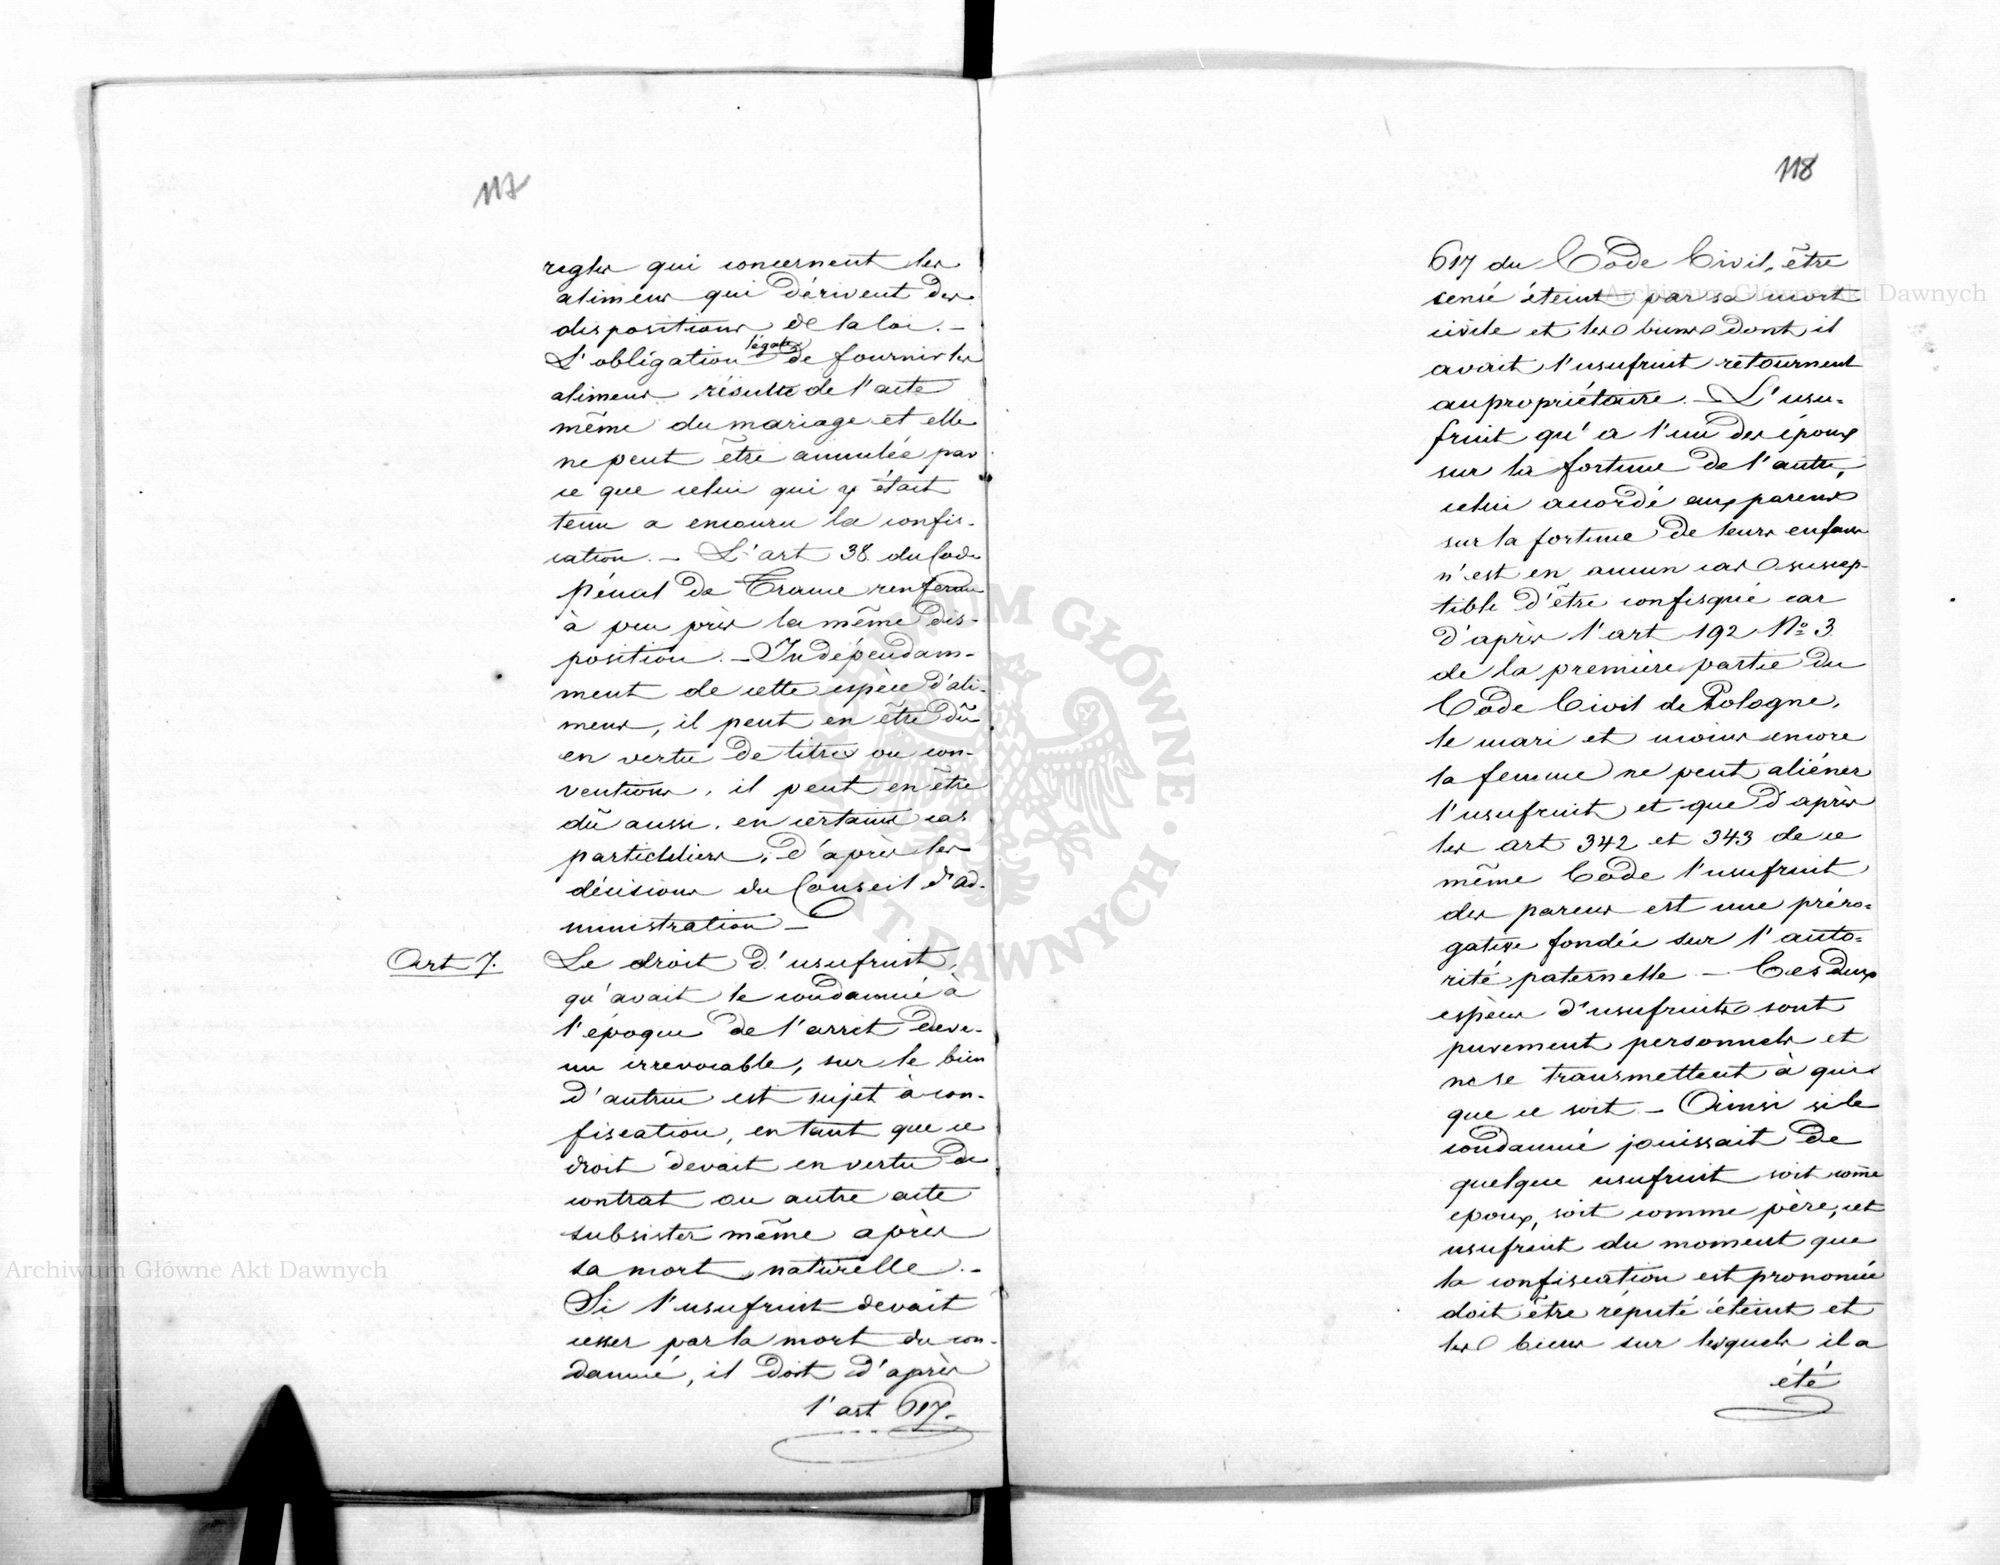 117
regles qui concernent les
alimens qui dérivent des
dispositions de la loi. –
L'obligation légale de fournir les
alimens résulte de l'acte
même du mariage et elle
ne peut être annulée par
ce que celui qui y était
tenu a encouru la confis-
cation. – L'art 38 du Code
pénal de France renferme
à peu près la même dis-
position. – Indépendam-
ment de cette espèce d'ali-
mens, il peut en être dû
en vertu de titres ou con-
ventions, il peut en être
dû aussi, en certains cas
particuliers, d'après les
décisions du Conseil d'ad-
ministration –
Art 7. Le droit d'usufruit,
qu'avait le condamné à
l'époque de l'arrêt deve-
nu irrevocable, sur le bien
d'autrui est sujet à con-
fiscation, en tant que ce
droit devait en vertu de
contrat ou autre acte
subsister même après
sa mort naturelle. –
Si l'usufruit devait
cesser par la mort du con-
damné, il doit d'après
l'art 617.
118
617 du Code Civil, être
censé éteint par sa mort
civile et les biens dont il
avait l'usufruit retournent
au propriétaire. – L'usu-
fruit qu'a l'un des époux
sur la fortune de l'autre,
celui accordé aux parens
sur la fortune de leurs enfans
n'est en aucun cas suscep-
tible d'être confisqué car
d'après l'art 192 No 3
de la première partie du
Code Civil de Pologne,
le mari et moins encore
la femme ne peut aliéner
l'usufruit et que d'après
les art 342 et 343 de ce
même Code l'usufruit
des parens est une préro-
gative fondée sur l'auto-
rité paternelle – Ces deux
espèces d'usufruits sont
purement personnels et
ne se transmettent à qui
que ce soit – Ainsi si le
condamné jouissait de
quelque usufruit soit come
epoux, soit comme père, cet
usufruit du moment que
la confiscation est prononcée
doit être réputé éteint et
les biens sur lesquels il a
été
Archiwum Główne Akt Dawnych
Archiwum Główne Akt Dawnych
ARCHIWUM GŁÓWNE · AKT DAWNYCH ·